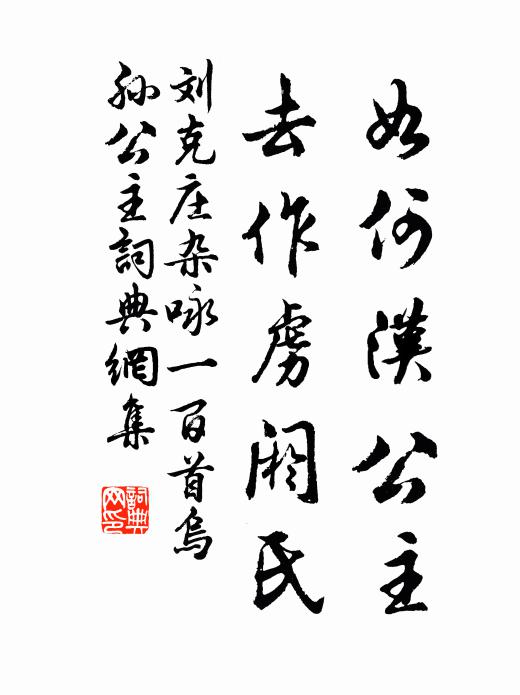 如何漢公主
去作虜阏氏
刘克庄杂咏一百首烏
孙公主詞典網集
詞典网印